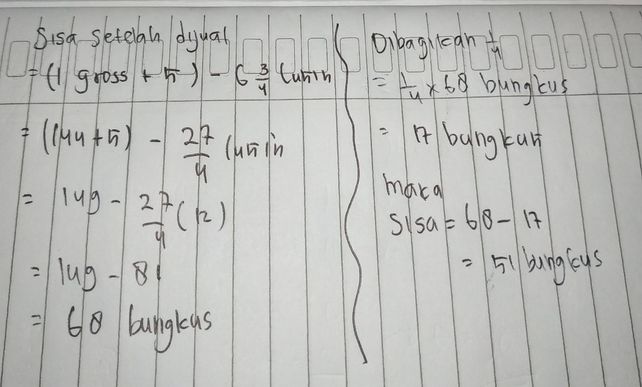 Sisa setelah dijual
= (1 gross + 5) - 6 3/4 lusin
= (144 + 5) - 27/4 lusin
= 149 - 27/4 (12)
= 149 - 81
= 68 bungkus
Dibagikan 1/4
= 1/4 × 68 bungkus
= 17 bungkus
maka
sisa = 68 - 17
= 51 bungkus